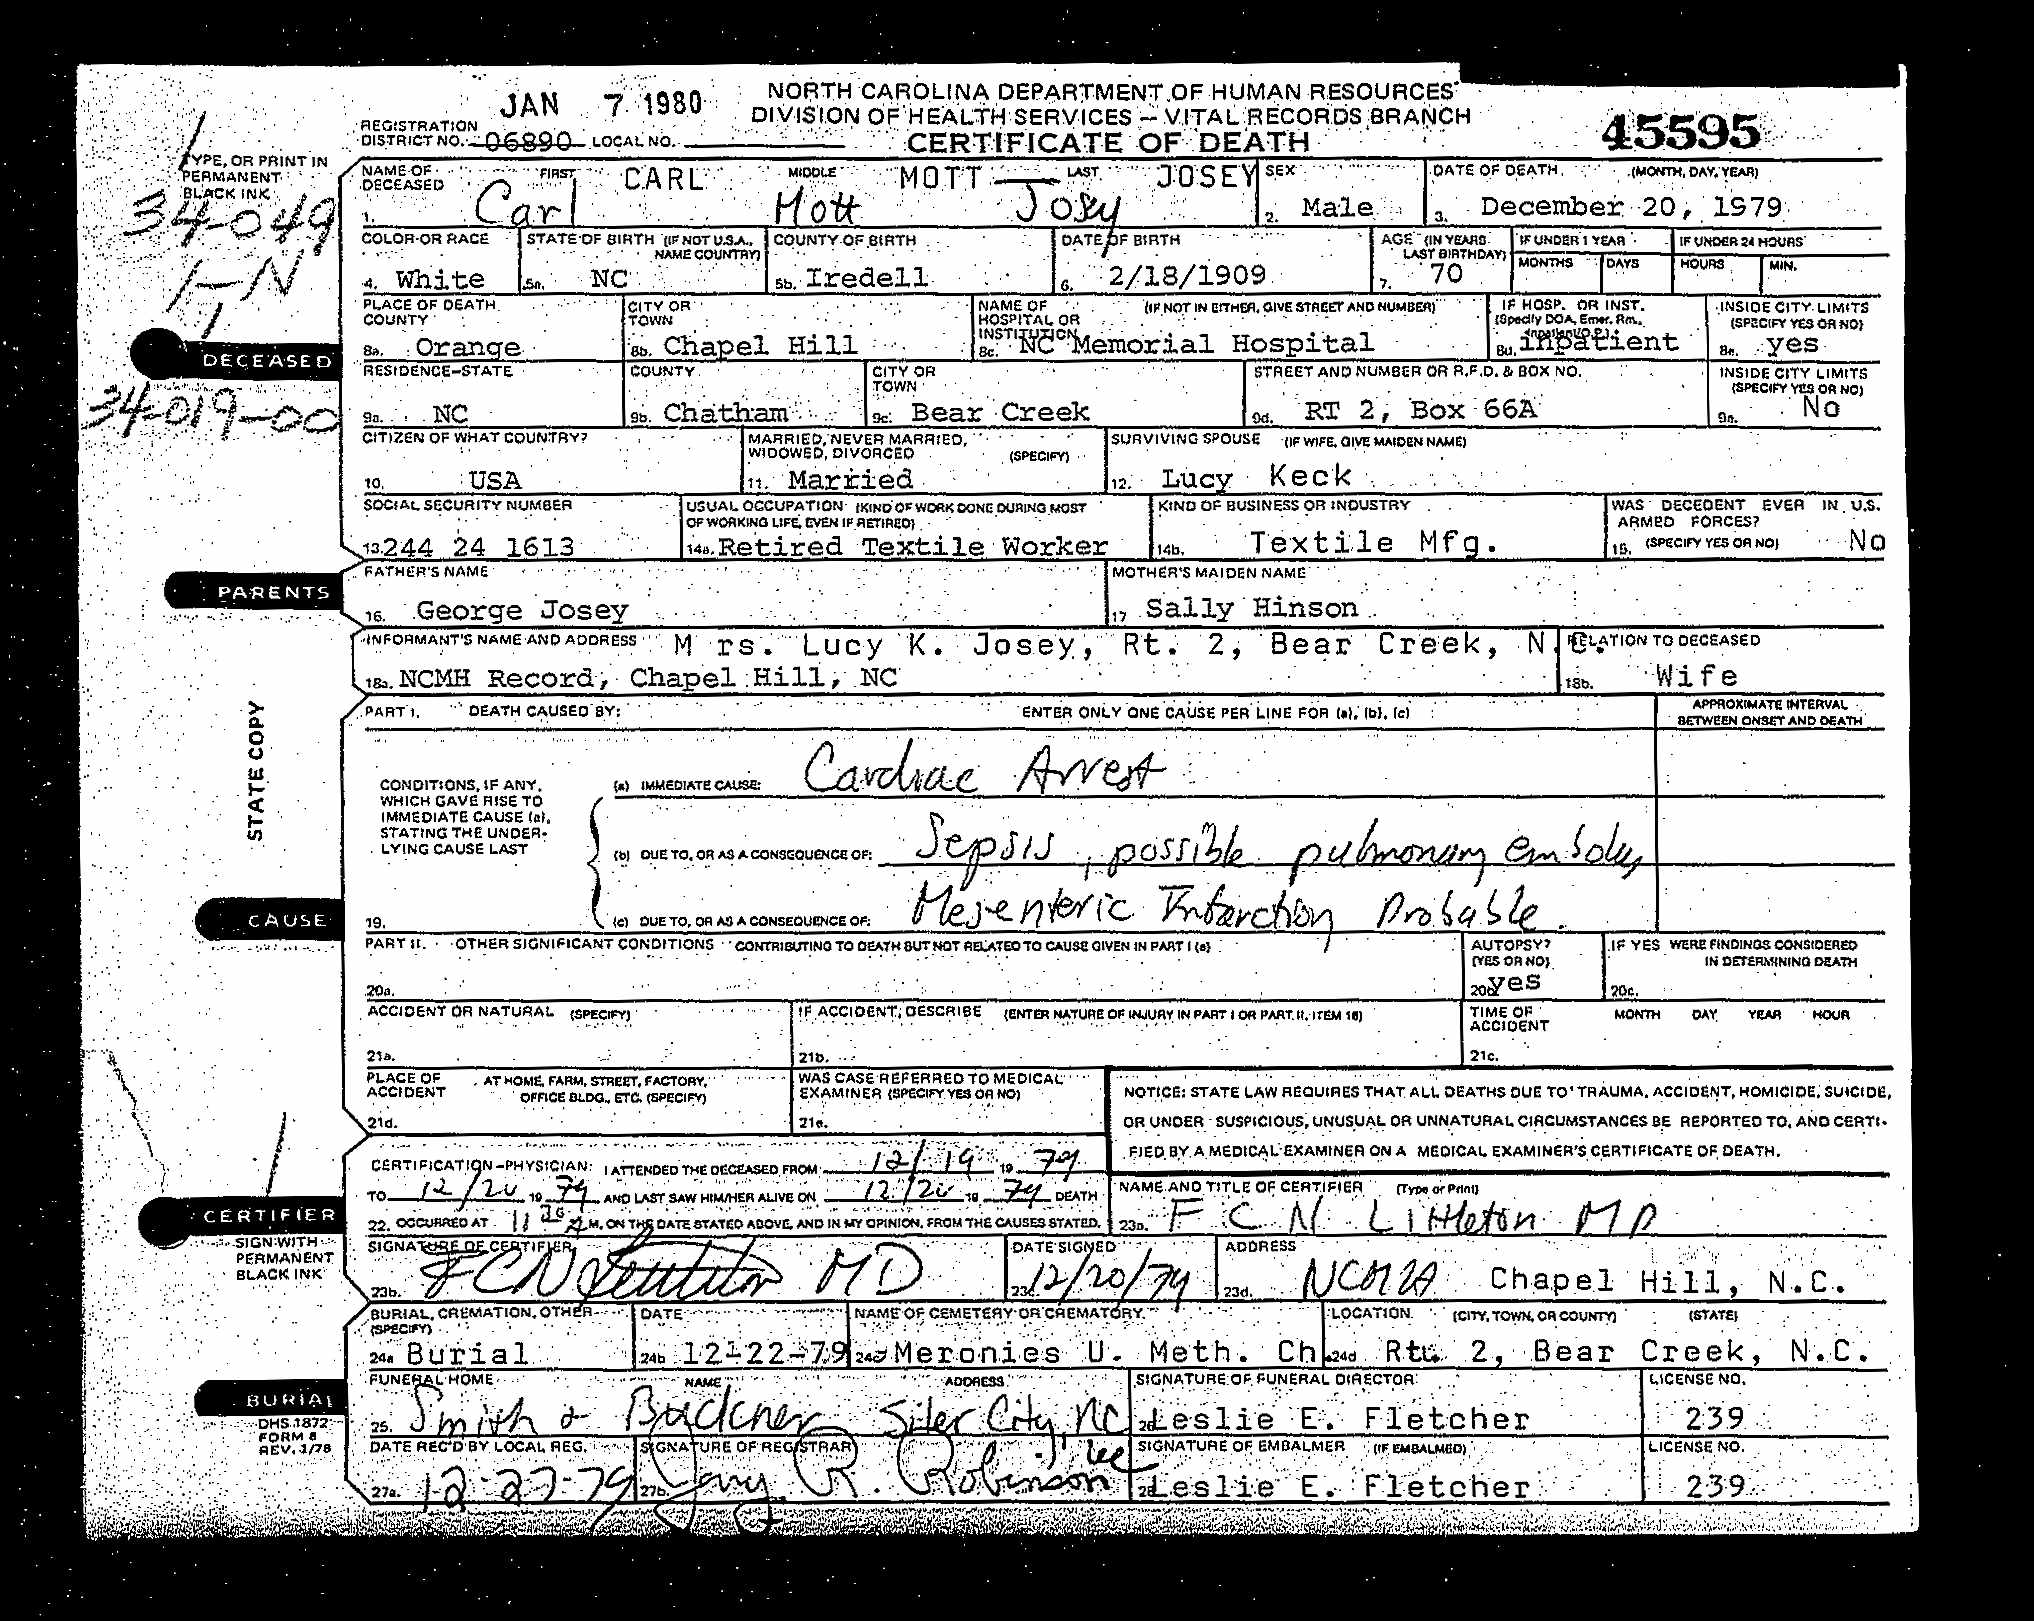 JAN 7 1980
NORTH CAROLINA DEPARTMENT OF HUMAN RESOURCES
DIVISION OF HEALTH SERVICES – VITAL RECORDS BRANCH
CERTIFICATE OF DEATH
45595
REGISTRATION DISTRICT NO. 06890 LOCAL NO.
TYPE, OR PRINT IN PERMANENT BLACK INK
34-049
1-N
1
DECEASED
34-019-00
NAME OF DECEASED FIRST CARL MIDDLE MOTT LAST JOSEY
1. Carl Mott Josey
SEX 2. Male
DATE OF DEATH (MONTH, DAY, YEAR) 3. December 20, 1979
COLOR OR RACE 4. White
STATE OF BIRTH (IF NOT U.S.A., NAME COUNTRY) 5a. NC
COUNTY OF BIRTH 5b. Iredell
DATE OF BIRTH 6. 2/18/1909
AGE (IN YEARS LAST BIRTHDAY) 7. 70
IF UNDER 1 YEAR MONTHS DAYS
IF UNDER 24 HOURS HOURS MIN.
PLACE OF DEATH COUNTY 8a. Orange
CITY OR TOWN 8b. Chapel Hill
NAME OF HOSPITAL OR INSTITUTION (IF NOT IN EITHER, GIVE STREET AND NUMBER) 8c. NC Memorial Hospital
IF HOSP. OR INST. (Specify DOA, Emer. Rm., Inpatient/O.P.) 8d. inpatient
INSIDE CITY LIMITS (SPECIFY YES OR NO) 8e. yes
RESIDENCE–STATE 9a. NC
COUNTY 9b. Chatham
CITY OR TOWN 9c. Bear Creek
STREET AND NUMBER OR R.F.D. & BOX NO. 9d. RT 2, Box 66A
INSIDE CITY LIMITS (SPECIFY YES OR NO) 9e. No
CITIZEN OF WHAT COUNTRY? 10. USA
MARRIED, NEVER MARRIED, WIDOWED, DIVORCED (SPECIFY) 11. Married
SURVIVING SPOUSE (IF WIFE, GIVE MAIDEN NAME) 12. Lucy Keck
SOCIAL SECURITY NUMBER 13. 244 24 1613
USUAL OCCUPATION (KIND OF WORK DONE DURING MOST OF WORKING LIFE, EVEN IF RETIRED) 14a. Retired Textile Worker
KIND OF BUSINESS OR INDUSTRY 14b. Textile Mfg.
WAS DECEDENT EVER IN U.S. ARMED FORCES? 15. (SPECIFY YES OR NO) No
PARENTS
FATHER'S NAME 16. George Josey
MOTHER'S MAIDEN NAME 17 Sally Hinson
INFORMANT'S NAME AND ADDRESS M rs. Lucy K. Josey, Rt. 2, Bear Creek, N.C.
18a. NCMH Record, Chapel Hill, NC
RELATION TO DECEASED 18b. Wife
STATE COPY
PART I. DEATH CAUSED BY: ENTER ONLY ONE CAUSE PER LINE FOR (a), (b), (c)
APPROXIMATE INTERVAL BETWEEN ONSET AND DEATH
CONDITIONS, IF ANY, WHICH GAVE RISE TO IMMEDIATE CAUSE (a), STATING THE UNDERLYING CAUSE LAST
(a) IMMEDIATE CAUSE: Cardiac Arrest
(b) DUE TO, OR AS A CONSEQUENCE OF: Sepsis, possible pulmonary embolus
CAUSE
19. (c) DUE TO, OR AS A CONSEQUENCE OF: Mesenteric Infarction Probable.
PART II. OTHER SIGNIFICANT CONDITIONS CONTRIBUTING TO DEATH BUT NOT RELATED TO CAUSE GIVEN IN PART I (a)
20a.
AUTOPSY? (YES OR NO) 20b yes
IF YES WERE FINDINGS CONSIDERED IN DETERMINING DEATH 20c.
ACCIDENT OR NATURAL (SPECIFY) 21a.
IF ACCIDENT, DESCRIBE (ENTER NATURE OF INJURY IN PART I OR PART II, ITEM 18) 21b.
TIME OF ACCIDENT MONTH DAY YEAR HOUR 21c.
PLACE OF ACCIDENT AT HOME, FARM, STREET, FACTORY, OFFICE BLDG., ETC. (SPECIFY) 21d.
WAS CASE REFERRED TO MEDICAL EXAMINER (SPECIFY YES OR NO) 21e.
NOTICE: STATE LAW REQUIRES THAT ALL DEATHS DUE TO TRAUMA, ACCIDENT, HOMICIDE, SUICIDE,
OR UNDER SUSPICIOUS, UNUSUAL OR UNNATURAL CIRCUMSTANCES BE REPORTED TO, AND CERTI-
FIED BY A MEDICAL EXAMINER ON A MEDICAL EXAMINER'S CERTIFICATE OF DEATH.
CERTIFIER
SIGN WITH PERMANENT BLACK INK
CERTIFICATION–PHYSICIAN: I ATTENDED THE DECEASED FROM 12/19 19 79
TO 12/20 19 79 AND LAST SAW HIM/HER ALIVE ON 12/20 19 79 DEATH
22. OCCURRED AT 11 30 A M, ON THE DATE STATED ABOVE, AND IN MY OPINION, FROM THE CAUSES STATED.
NAME AND TITLE OF CERTIFIER (Type or Print) 23a. F C N Littleton MD
SIGNATURE OF CERTIFIER 23b. FCN Littleton MD
DATE SIGNED 23c. 12/20/79
ADDRESS 23d. NCMH Chapel Hill, N.C.
BURIAL, CREMATION, OTHER (SPECIFY) 24a Burial
DATE 24b 12-22-79
NAME OF CEMETERY OR CREMATORY 24c Meronies U. Meth. Ch.
LOCATION (CITY, TOWN, OR COUNTY) (STATE) 24d Rt. 2, Bear Creek, N.C.
BURIAL
DHS 1872
FORM 8
REV. 1/78
FUNERAL HOME NAME ADDRESS 25. Smith & Buckner Siler City, NC
SIGNATURE OF FUNERAL DIRECTOR 26 Leslie E. Fletcher
LICENSE NO. 239
DATE REC'D BY LOCAL REG. 27a. 12-27-79
SIGNATURE OF REGISTRAR 27b. R. Robinson
SIGNATURE OF EMBALMER (IF EMBALMED) 28 Leslie E. Fletcher
LICENSE NO. 239